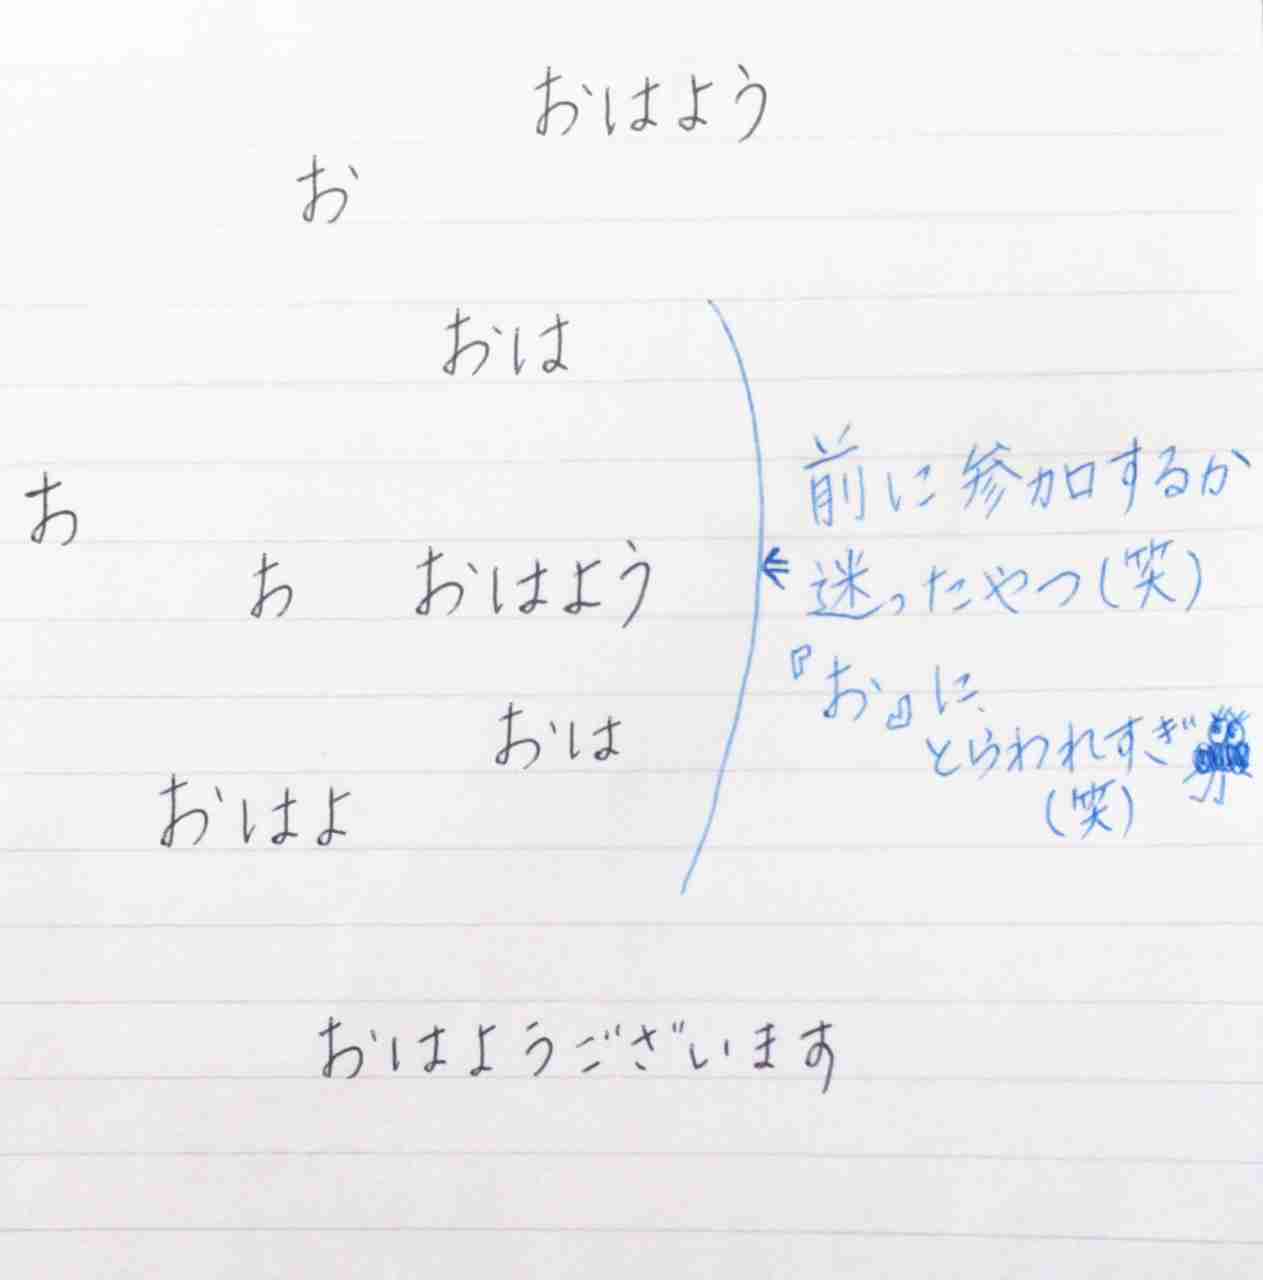 おはよう
お
おは
お
お おはよう
おは
おはよ
前に参加するか
迷ったやつ(笑)
『お』に、
とらわれすぎ
(笑)
おはようございます